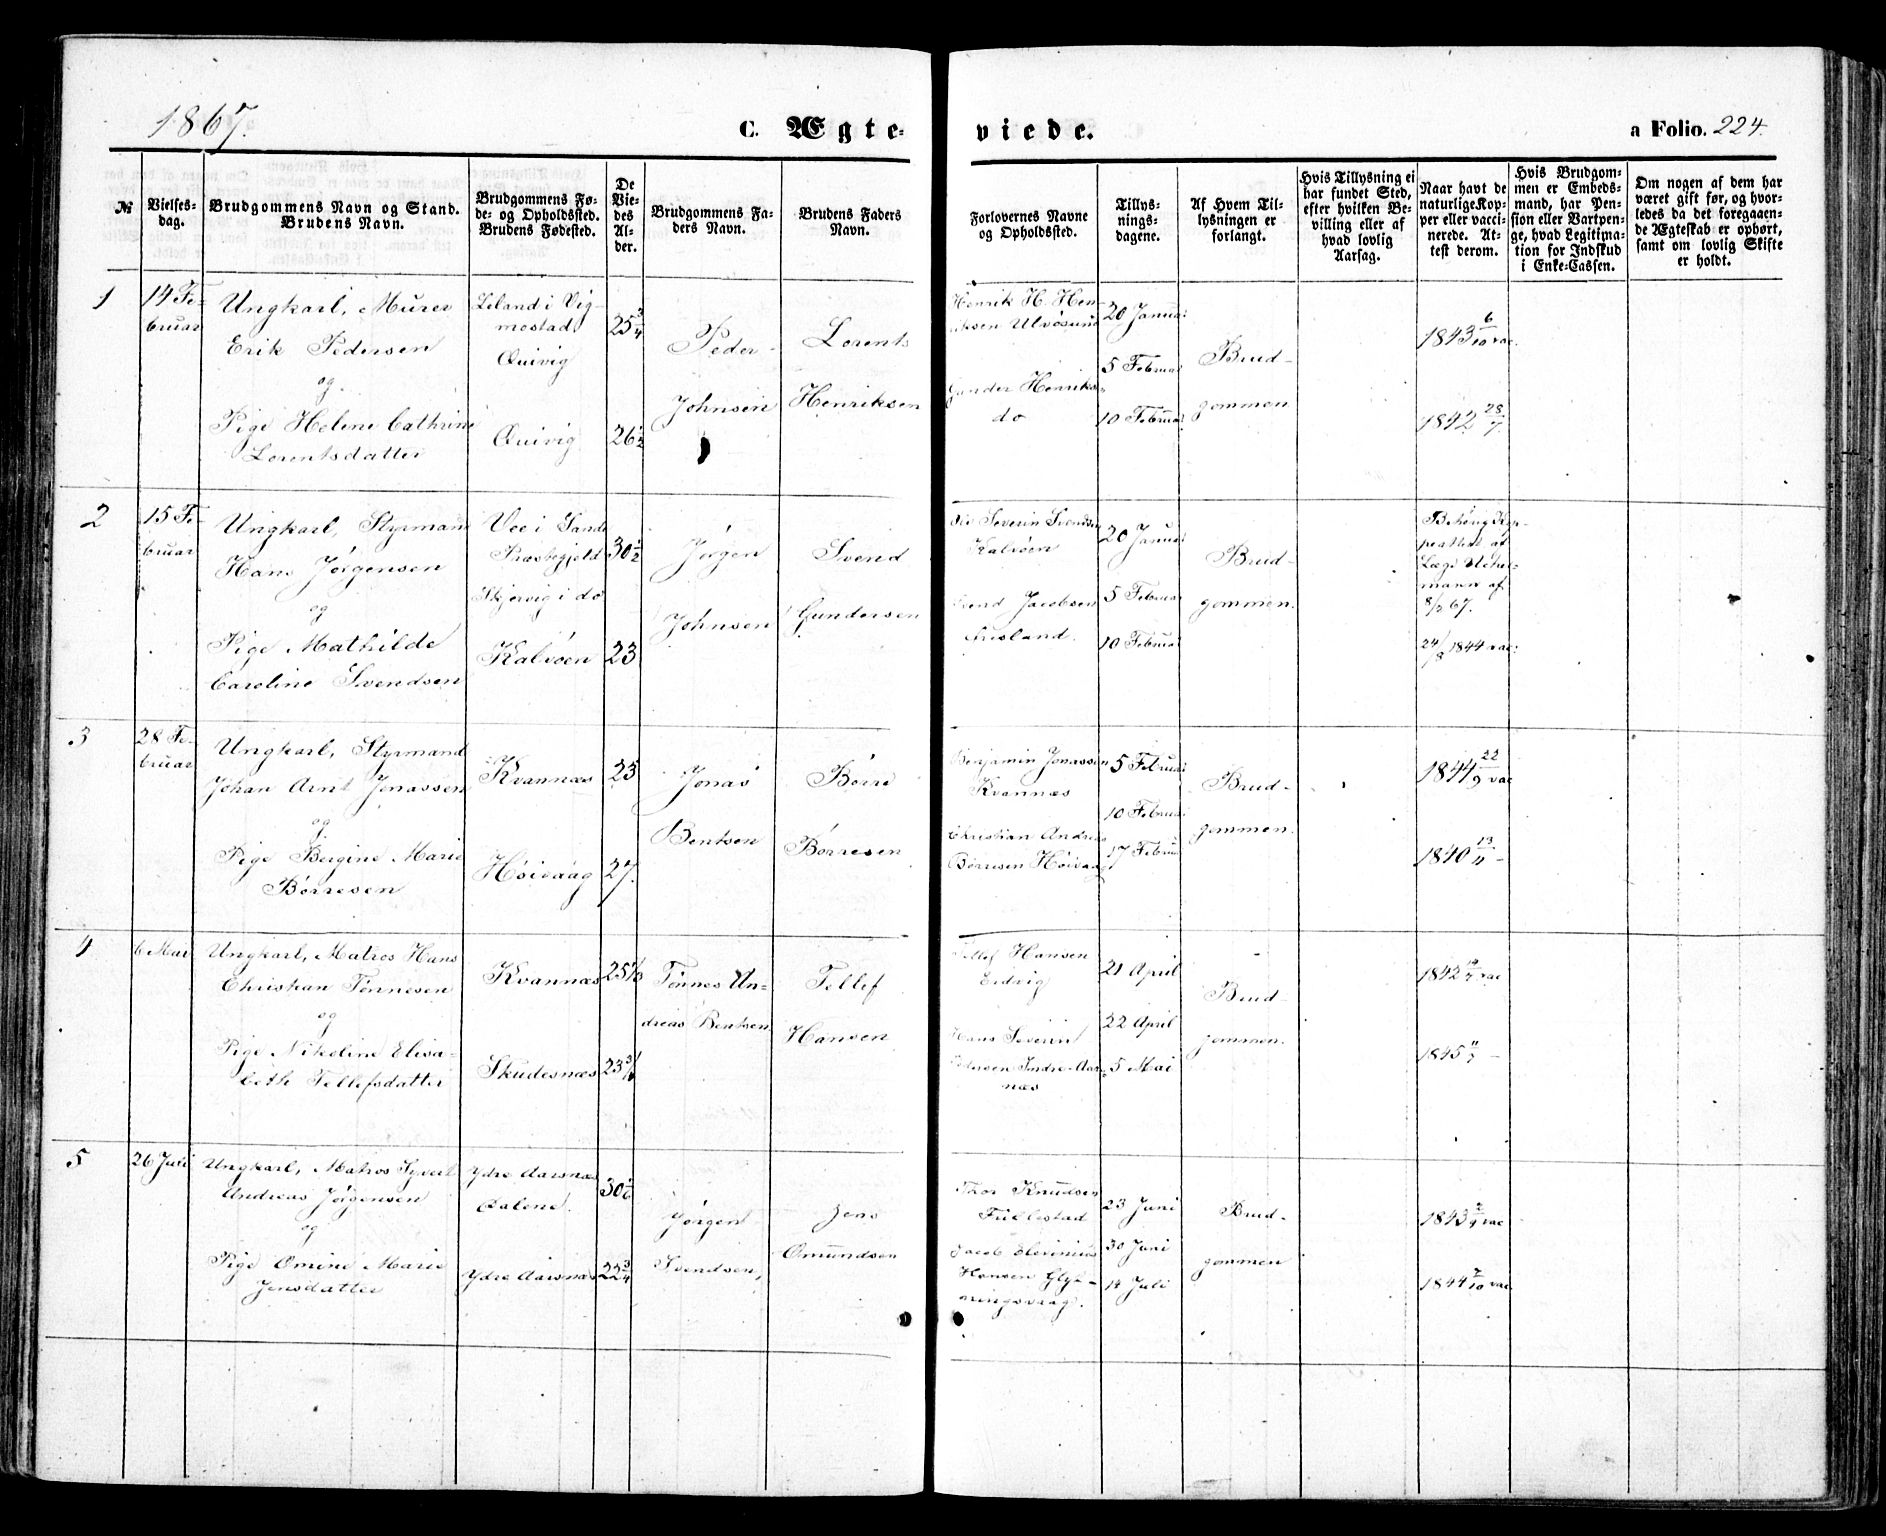 1867.
C. Ægte-
viede.
a Folio. 224.
№
Vielses-
dag.
Brudgommens Navn og Stand.
Brudens Navn.
Brudgommens Fø-
de- og Opholdssted.
Brudens Fødested.
De
Vie-
des
Al-
der.
Brudgommens Fa-
ders Navn.
Brudens Faders
Navn.
Forlovernes Navne
og Opholdssted.
Tillys-
nings-
dagene.
Af Hvem Til-
lysningen er
forlangt.
Hvis Tillysning ei
har fundet Sted,
efter hvilken Be-
villing eller af
hvad lovlig
Aarsag.
Naar havt de
naturlige Kop-
per eller vacci-
nerede. At-
test derom.
Hvis Brudgom-
men er Embeds-
mand, har Pen-
sion eller Vartpen-
ge, hvad Legitima-
tion for Indskud
i Enke-Cassen.
Om nogen af dem har
været gift før, og hvor-
ledes da det foregaaen-
de Ægteskab er ophørt,
samt om lovlig Skifte
er holdt.
1
14 Fe-
bruar
Ungkarl, Murer
Erik Pedersen
og
Pige Helene Cathrine
Lorentsdatter
Leland i Vig-
mostad
Qvivig
Qvivig
25 3/4
26 1/2
Peder
Johnsen
Lorents
Henriksen
Henrik H. Hen-
riksen Ulvøsund
Gunder Henriks-
do
20 Januar
5 Februar
10 Februar
Brud-
gommen
1843 6/10 vac.
1842 28/7
2
15 Fe-
bruar
Ungkarl, Styrmand
Hans Jørgensen
og
Pige Mathilde
Caroline Svendsen
Vee i Sande
Præstegjeld
Skjervig i do
Kalvøen
30 1/2
23
Jørgen
Johnsen
Svend
Gundersen
Severin Svendsen
Kalvøen
Svend Jacobsen
20 Januar
5 Februar
10 Februar
Brud-
gommen.
af
Læge
mann af
8/2 67.
24/8 1844 vac.
3
28 Fe-
bruar
Ungkarl, Styrmand
Johan Arnt Jonassen
og
Pige Bergine Marie
Børresen
Kvannæs
Høivaag
23
27.
Jonas
Bentsen
Børre
Børresen
Benjamin Jonassen
Kvannæs
Christian Andreas
Børresen Høivaag
5 Februar
10 Februar
17 Februar
Brud-
gommen.
1844 22/9 vac
1840 13/11 –
4
6 Mai
Ungkarl, Matros Hans
Christian Tønnesen
og
Pige Nikoline Elisa-
beth Tellefsdatter
Kvannæs
Skudesnæs
25 1/3
23 3/4
Tønnes An-
dreas Bentsen
Tellef
Hansen
Tellef Hansen
Eidvig
Hans Severin
Pedersen Indre-Aas-
næs
21 April
22 April
5 Mai
Brud-
gommen.
1842 12/7 vac
1845 11/7 –
5
26 Juli
Ungkarl, Matros Syvert
Andreas Jørgensen
og
Pige Omine Marie
Jensdatter
Ydre Aarsnæs
Dalene.
Ydre Aarsnæs
30 1/6
22 3/4
Jørgen
Svendsen,
Jens
Omundsen
Thor Knudsen
Fullestad
Jacob Elevinius
Hansen Glyt-
ningsvaag.
23 Juni
30 Juni
14 Juli
Brud-
gommen
1843 2/9 vac
1844 7/10 vac.